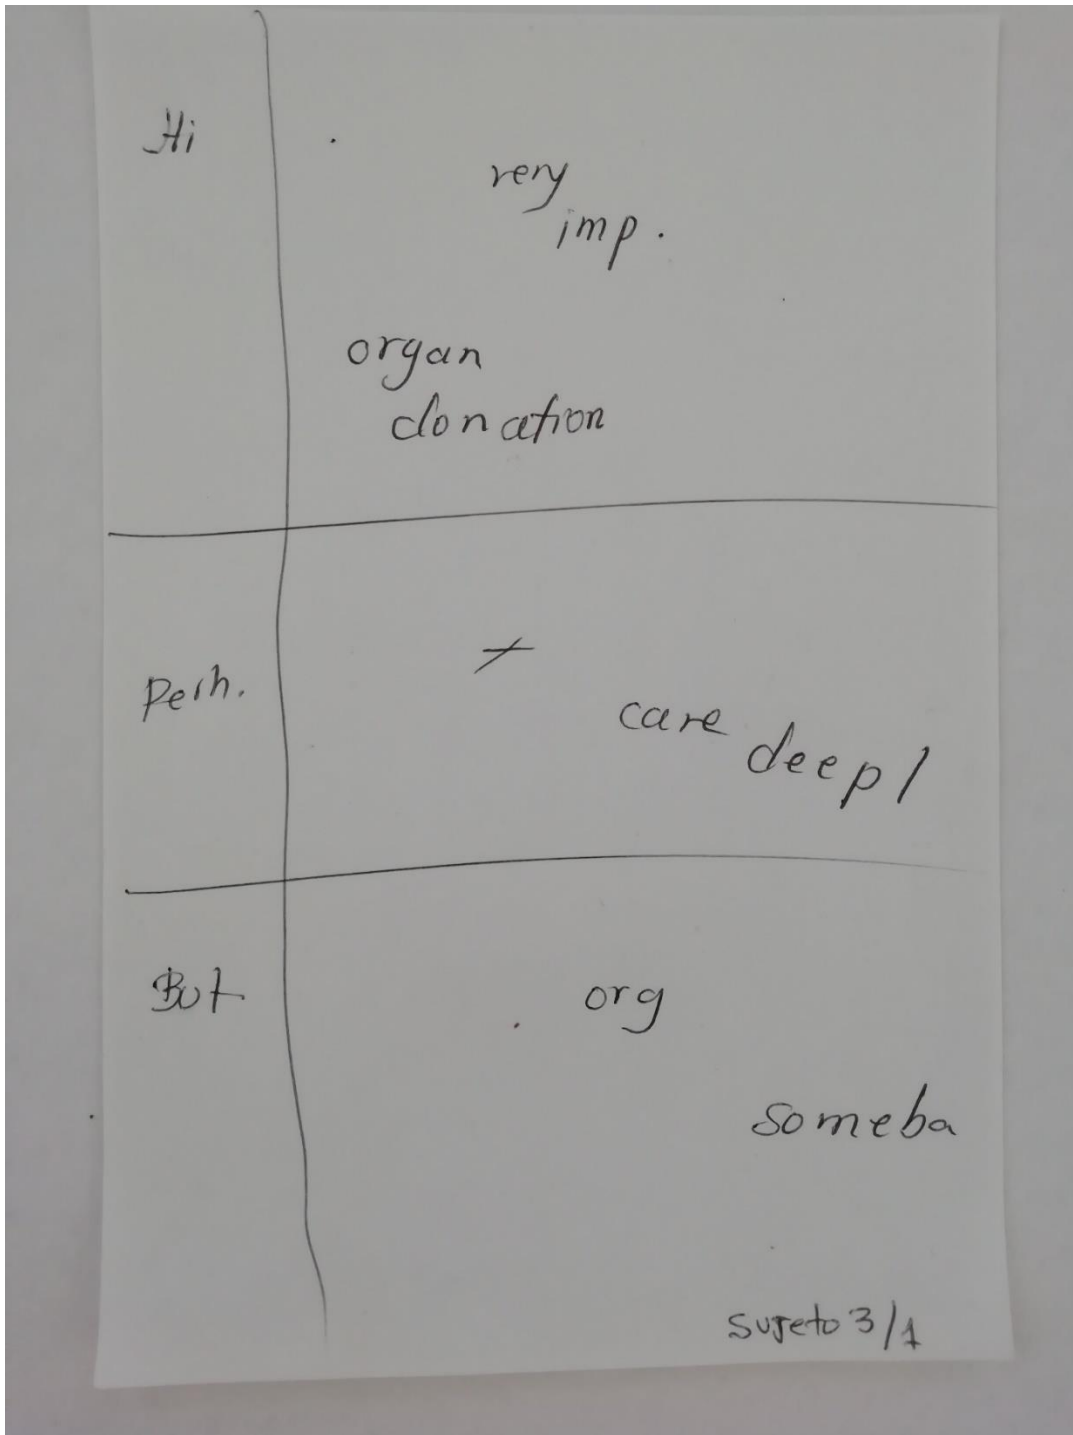 Hi
very
imp.
organ
donation
Perh.
care
deepl
But
org
someba
sujeto 3/1